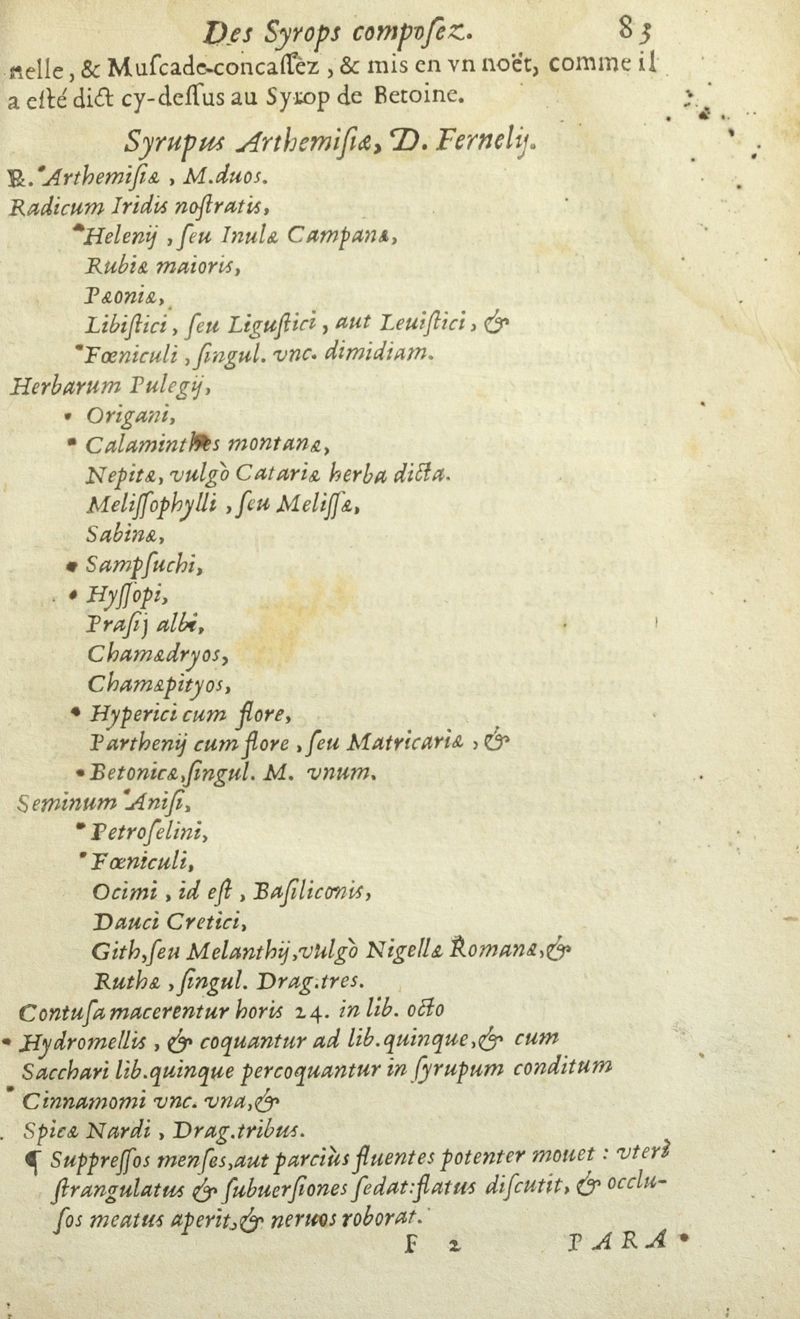 Des Syrops compoſez. 83
nelle, & Muſcade-concaſſez, & mis en vn noët, comme il
a eſté dict cy-deſſus au Syrop de Betoine.
Syrupus Arthemiſiæ, D. Fernelij.
℞. Arthemiſiæ, M.duos.
Radicum Iridis noſtratis,
Helenij, ſeu Inulæ Campanæ,
Rubiæ maioris,
Pæoniæ,
Libiſtici, ſeu Liguſtici, aut Leuiſtici, &
Fœniculi, ſingul. vnc. dimidiam.
Herbarum Pulegij,
Origani,
Calaminthes montanæ,
Nepitæ, vulgò Catariæ herba dicta.
Meliſſophylli, ſeu Meliſſæ,
Sabinæ,
Sampſuchi,
Hyſſopi,
Praſij albi,
Chamædryos,
Chamæpityos,
Hyperici cum flore,
Parthenij cum flore, ſeu Matricariæ, &
Betonicæ, ſingul. M. vnum.
Seminum Aniſi,
Petroſelini,
Fœniculi,
Ocimi, id eſt, Baſiliconis,
Dauci Cretici,
Gith, ſeu Melanthij, vulgò Nigellæ Romanæ, &
Ruthæ, ſingul. Drag.tres.
Contuſa macerentur horis 24. in lib. octo
Hydromellis, & coquantur ad lib.quinque, & cum
Sacchari lib.quinque percoquantur in ſyrupum conditum
Cinnamomi vnc. vna, &
Spicæ Nardi, Drag.tribus.
¶ Suppreſſos menſes, aut parciùs fluentes potenter mouet: vteri
ſtrangulatus & ſubuerſiones ſedat: flatus diſcutit, & occlu-
ſos meatus aperit, & neruos roborat.
F 2 PARA